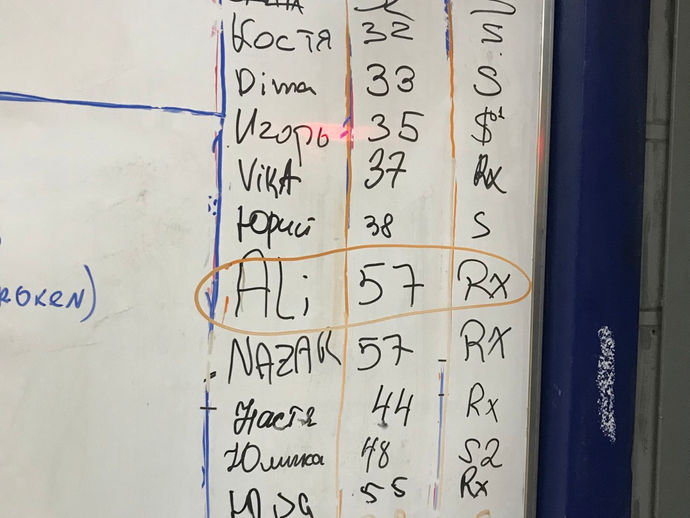 Костя 32 S
Dima 33 S
Игорь 35 $
VikA 37 Rx
Юрий 38 S
ROKEN)
ALi 57 Rx
NAZAR 57 RX
Настя 44 Rx
Юлика 48 S2
55 Rx